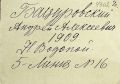 Батуровский
Андрей Алексеевич
1909
Н Водопой
5-Линия №16